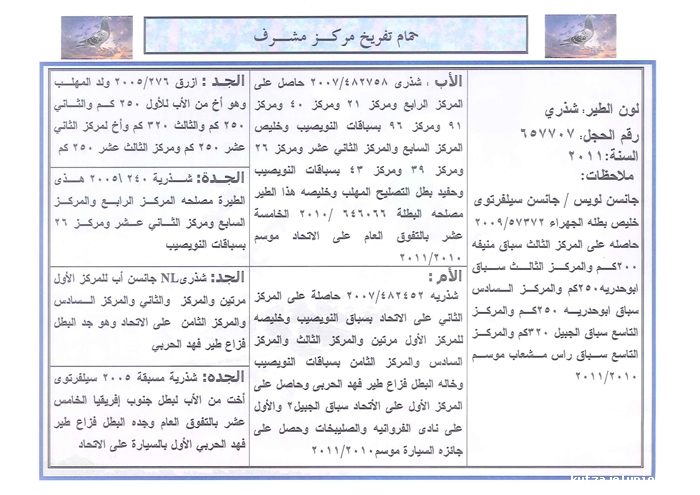 حمام تفريخ مركـــز مشـــرف
لون الطير: شذري
رقم الحجل: ٦٥٧٧٠٧
السنة: ٢٠١١
ملاحظات:
جانسن لويس / جانسن سيلفرتوى
خليص بطله الجهراء ٢٠٠٩/٥٧٣٧٢
حاصله على المركز الثالث سباق منيفه
٢٠٠كـم والمركـز الثـالـث سـبـاق
ابوحدريه٢٥٠كم والمركـز الـسـادس
سباق ابوحدريـه ٢٥٠كـم والمركـز
التاسع سباق الجبيل ٣٢٠كم والمركـز
التاسع سـباق راس مـشعاب موسـم
٢٠١١/٢٠١٠
الأب : شذرى ٢٠٠٧/٤٨٢٧٥٨ حاصل على
المركز الرابع ومركز ٢١ ومركز ٤٠ ومركز
٩١ ومركز ٩٦ بسباقات النويصيب وخليص
المركز السابع والمركز الثاني عشر ومركز ٢٦
ومركز ٣٩ ومركز ٤٣ بسباقات النويصيب
وحفيد بطل التصليح المهلب وخليصه هذا الطير
مصلحه البطلة ٦٤٦٠٦٦ /٢٠١٠ الخامسة
عشر بالتفوق العام على الاتحاد موسم
٢٠١١/٢٠١٠
الأم :
شذريه ٢٠٠٧/٤٨٢٤٥٢ حاصلة على المركز
الثاني على الاتحاد بسباق النويصيب وخليصه
للمركز الأول مرتين والمركز الثالث والمركز
السادس والمركز الثامن بسباقات النويصيب
وخاله البطل فزاع طير فهد الحربى وحاصل على
المركز الأول على الأتحاد سباق الجبيل٢ والأول
على نادى الفروانيه والصليبخات وحصل على
جائزه السيارة موسم٢٠١١/٢٠١٠
الجـد : ازرق ٢٠٠٥/٢٧٦ ولد المهلـب
وهو أخ من الأب للأول ٢٥٠ كـم والثـاني
٢٥٠ كم والثالث ٣٢٠ كم وأخ لمركز الثاني
عشر ٢٥٠ كم ومركز الثالث عشر ٢٥٠ كم
الجدة: شـذريـة ٢٤٠ \٢٠٠٥ هـذى
الطيرة مصلحه المركـز الرابـع والمركـز
السابع ومركز الثـاني عـشر ومركـز ٢٦
بسباقات النويصيب
الجد: شذرىNL جانسن أب للمركز الأول
مرتين والمركز والثاني والمركز السـادس
والمركز الثامن على الاتحاد وهو جد البطل
فزاع طير فهد الحربي
الجده: شذرية مسبقة ٢٠٠٥ سيلفرتوى
أخت من الأب لبطل جنوب إفريقيا الخامس
عشر بالتفوق العام وجده البطل فزاع طير
فهد الحربي الأول بالسيارة على الاتحاد